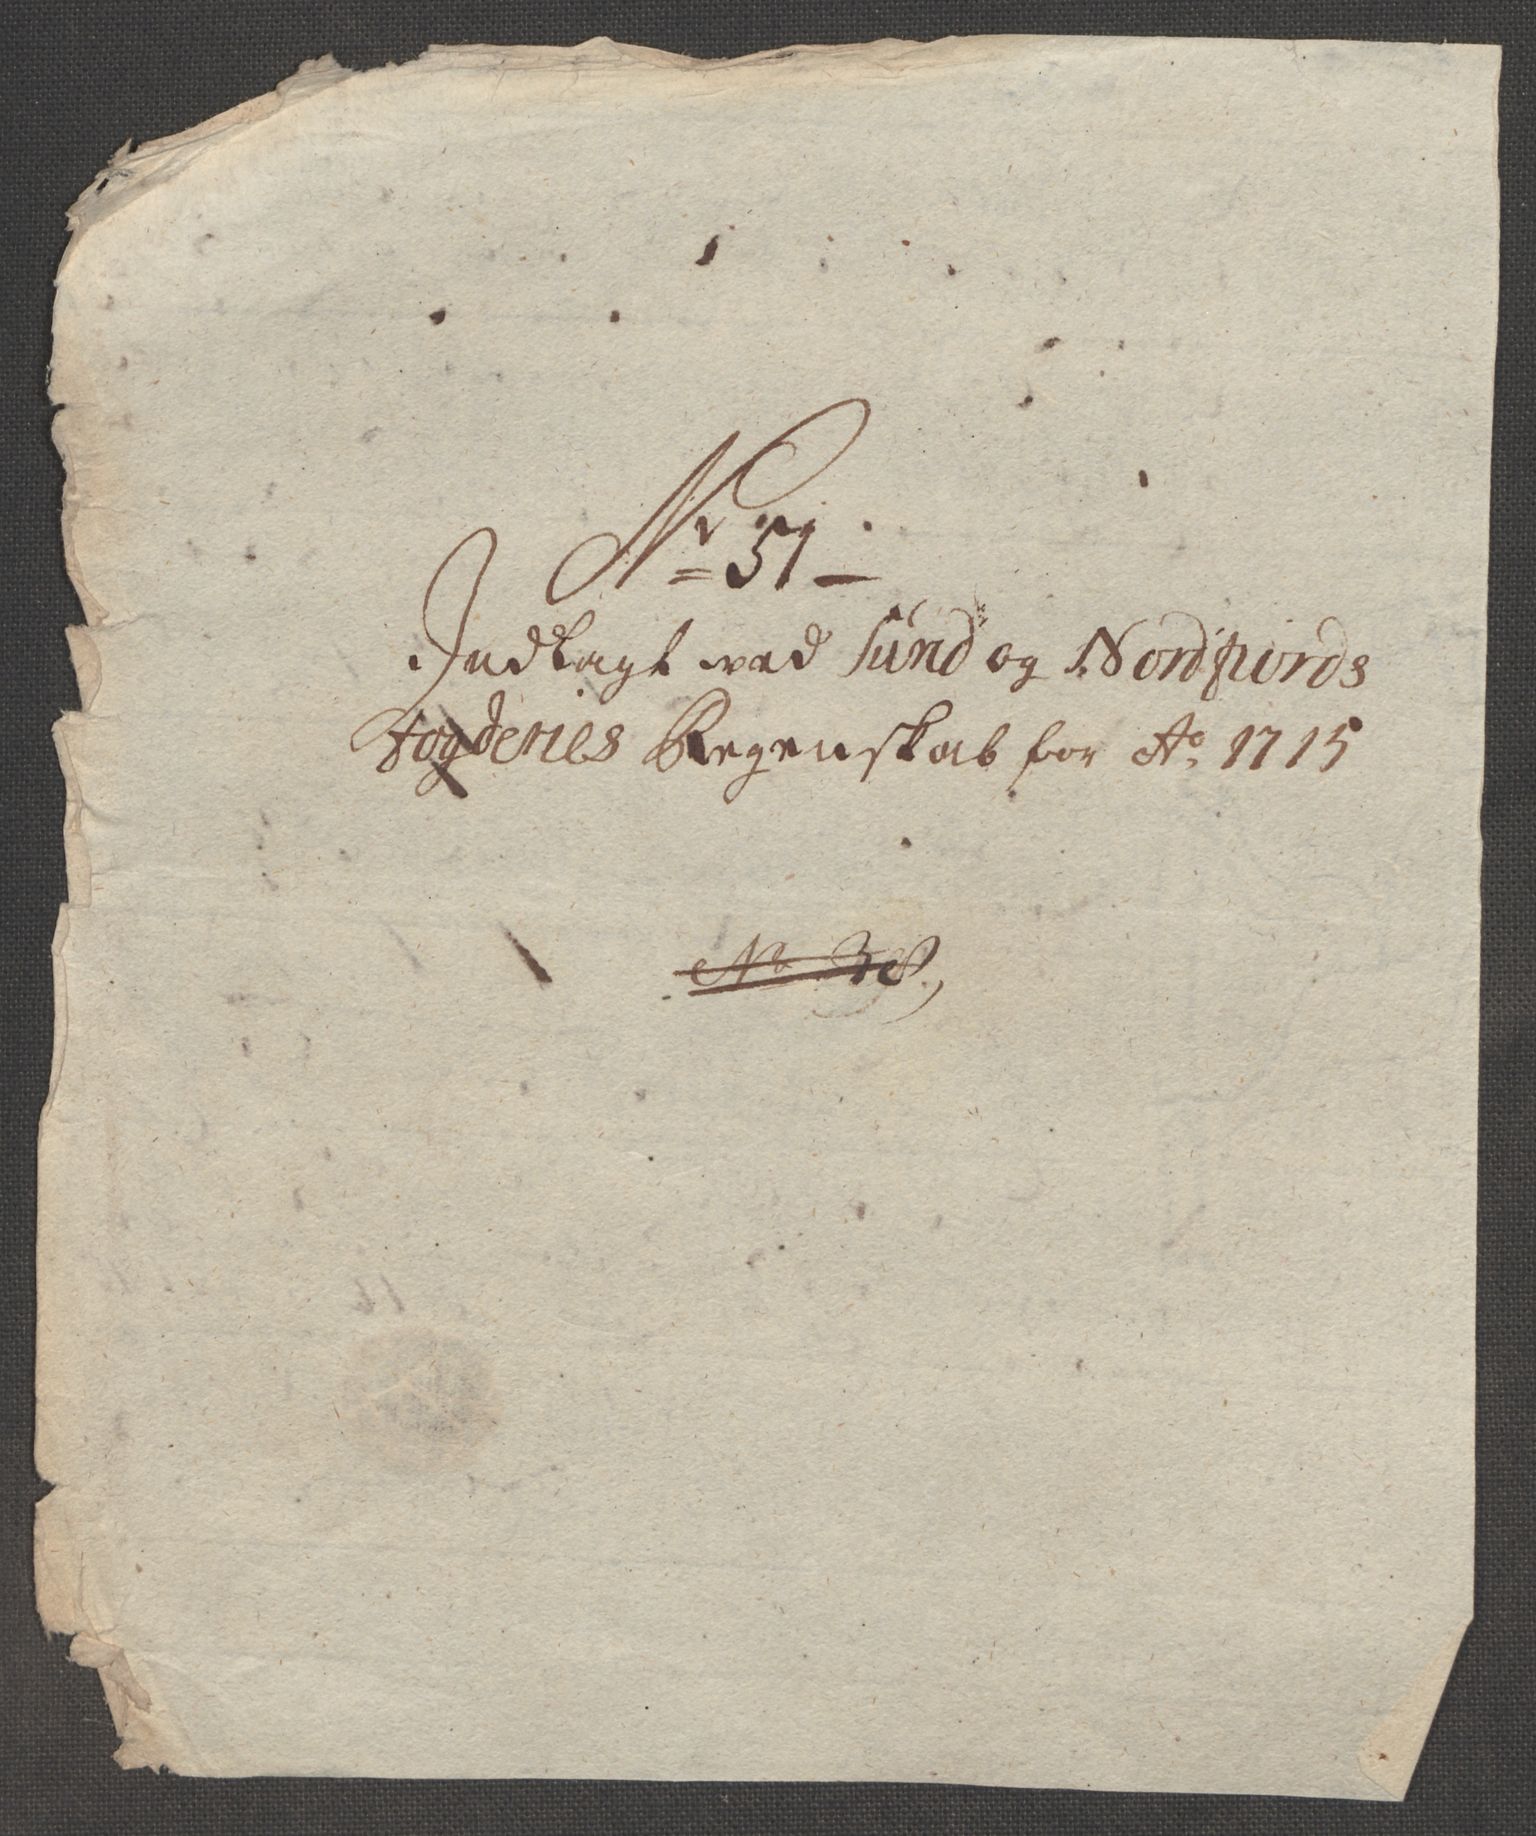 Nr 51
Indlagt ved Sund og Nordfiords
fogderies Regenskab for Ao 1715
No 38